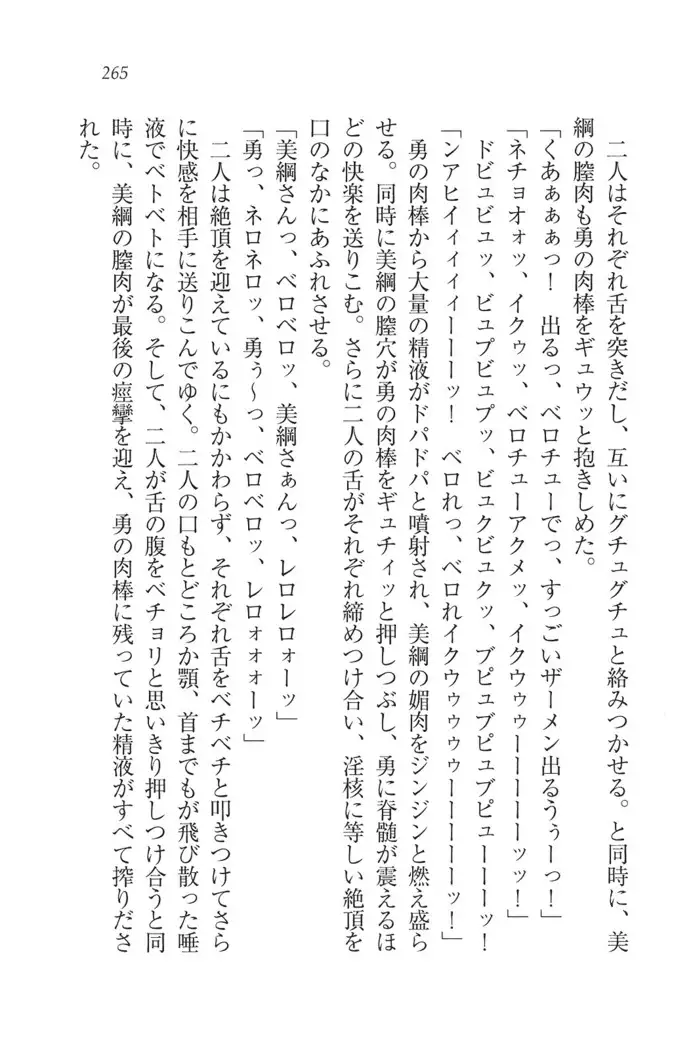 265
二人はそれぞれ舌を突きだし、互いにグチュグチュと絡みつかせる。と同時に、美
綱の膣肉も勇の肉棒をギュウッと抱きしめた。
「くあぁぁぁっ！　出るっ、ベロチューでっ、すっごいザーメン出るうぅーっ！」
「ネチョオォッ、イクゥッ、ベロチューアクメッ、イクウゥゥーーーーーッッ！」
ドビュビュッ、ビュプビュプッ、ビュクビュクッ、ブピュブピュブピューーーッ！
「ンアヒイィィィィーーーッ！　ベロれっ、ベロれイクウゥゥゥゥーーーーーッ！」
勇の肉棒から大量の精液がドパドパと噴射され、美綱の媚肉をジンジンと燃え盛ら
せる。同時に美綱の膣穴が勇の肉棒をギュチィッと押しつぶし、勇に脊髄が震えるほ
どの快楽を送りこむ。さらに二人の舌がそれぞれ締めつけ合い、淫核に等しい絶頂を
口のなかにあふれさせる。
「美綱さんっ、ベロベロッ、美綱さぁんっ、レロレロォーッ」
「勇っ、ネロネロッ、勇ぅ〜っ、ベロベロッ、レロォォォーッ」
二人は絶頂を迎えているにもかかわらず、それぞれ舌をベチベチと叩きつけてさら
に快感を相手に送りこんでゆく。二人の口もとどころか顎、首までもが飛び散った唾
液でベトベトになる。そして、二人が舌の腹をベチョリと思いきり押しつけ合うと同
時に、美綱の膣肉が最後の痙攣を迎え、勇の肉棒に残っていた精液がすべて搾りださ
れた。